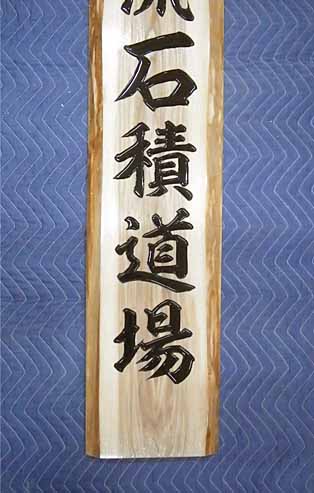 流石積道場